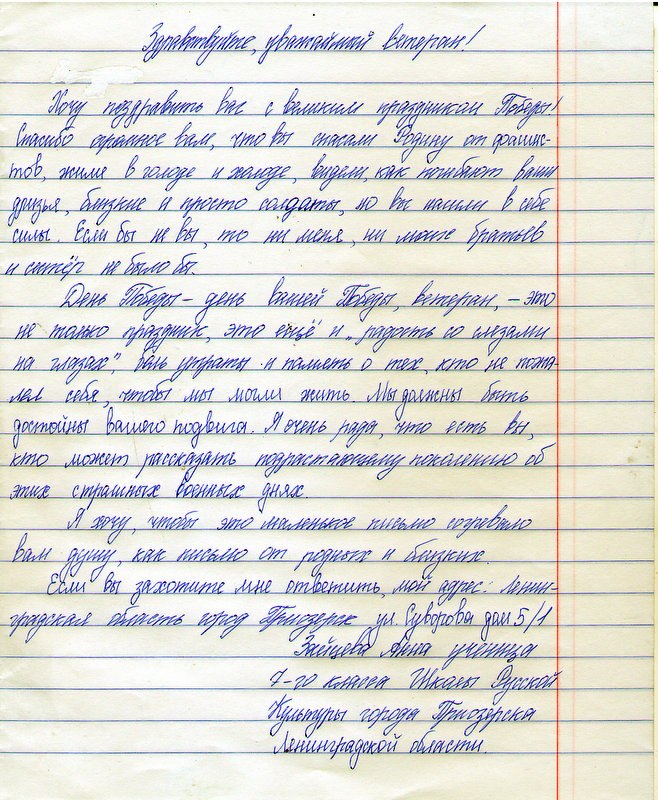 Здравствуйте, уважаемый ветеран!
Хочу поздравить вас с великим праздником Победы!
Спасибо огромное вам, что вы спасали Родину от фашис-
тов, жили в голоде и холоде, видели, как погибают ваши
друзья, близкие и просто солдаты, но вы нашли в себе
силы. Если бы не вы, то ни меня, ни моих братьев
и сестёр не было бы.
День Победы – день вашей Победы, ветеран, – это
не только праздник, это ещё и „радость со слезами
на глазах”, боль утраты и память о тех, кто не пожа-
лел себя, чтобы мы могли жить. Мы должны быть
достойны вашего подвига. Я очень рада, что есть вы,
кто может рассказать подрастающему поколению об
этих страшных военных днях.
Я хочу, чтобы это маленькое письмо согревало
вам душу, как письмо от родных и близких.
Если вы захотите мне ответить, мой адрес: Ленин-
градская область город Приозерск ул. Суворова дом 5/1
Зайцева Анна ученица
7-го класса Школы Русской
Культуры города Приозерска
Ленинградской области.